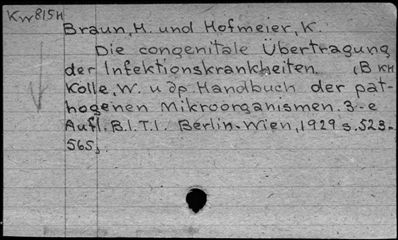 Kw815H
Braun, H. und Hofmeier, K.
Die congenitale Übertragung
der Infektionskrankheiten. (В кн
Kolle, W. u др. Handbuch der pat-
hogenen Mikroorganismen. 3-e
Aufl. B.I.T.I. Berlin-Wien, 1929 s. 523-
565).